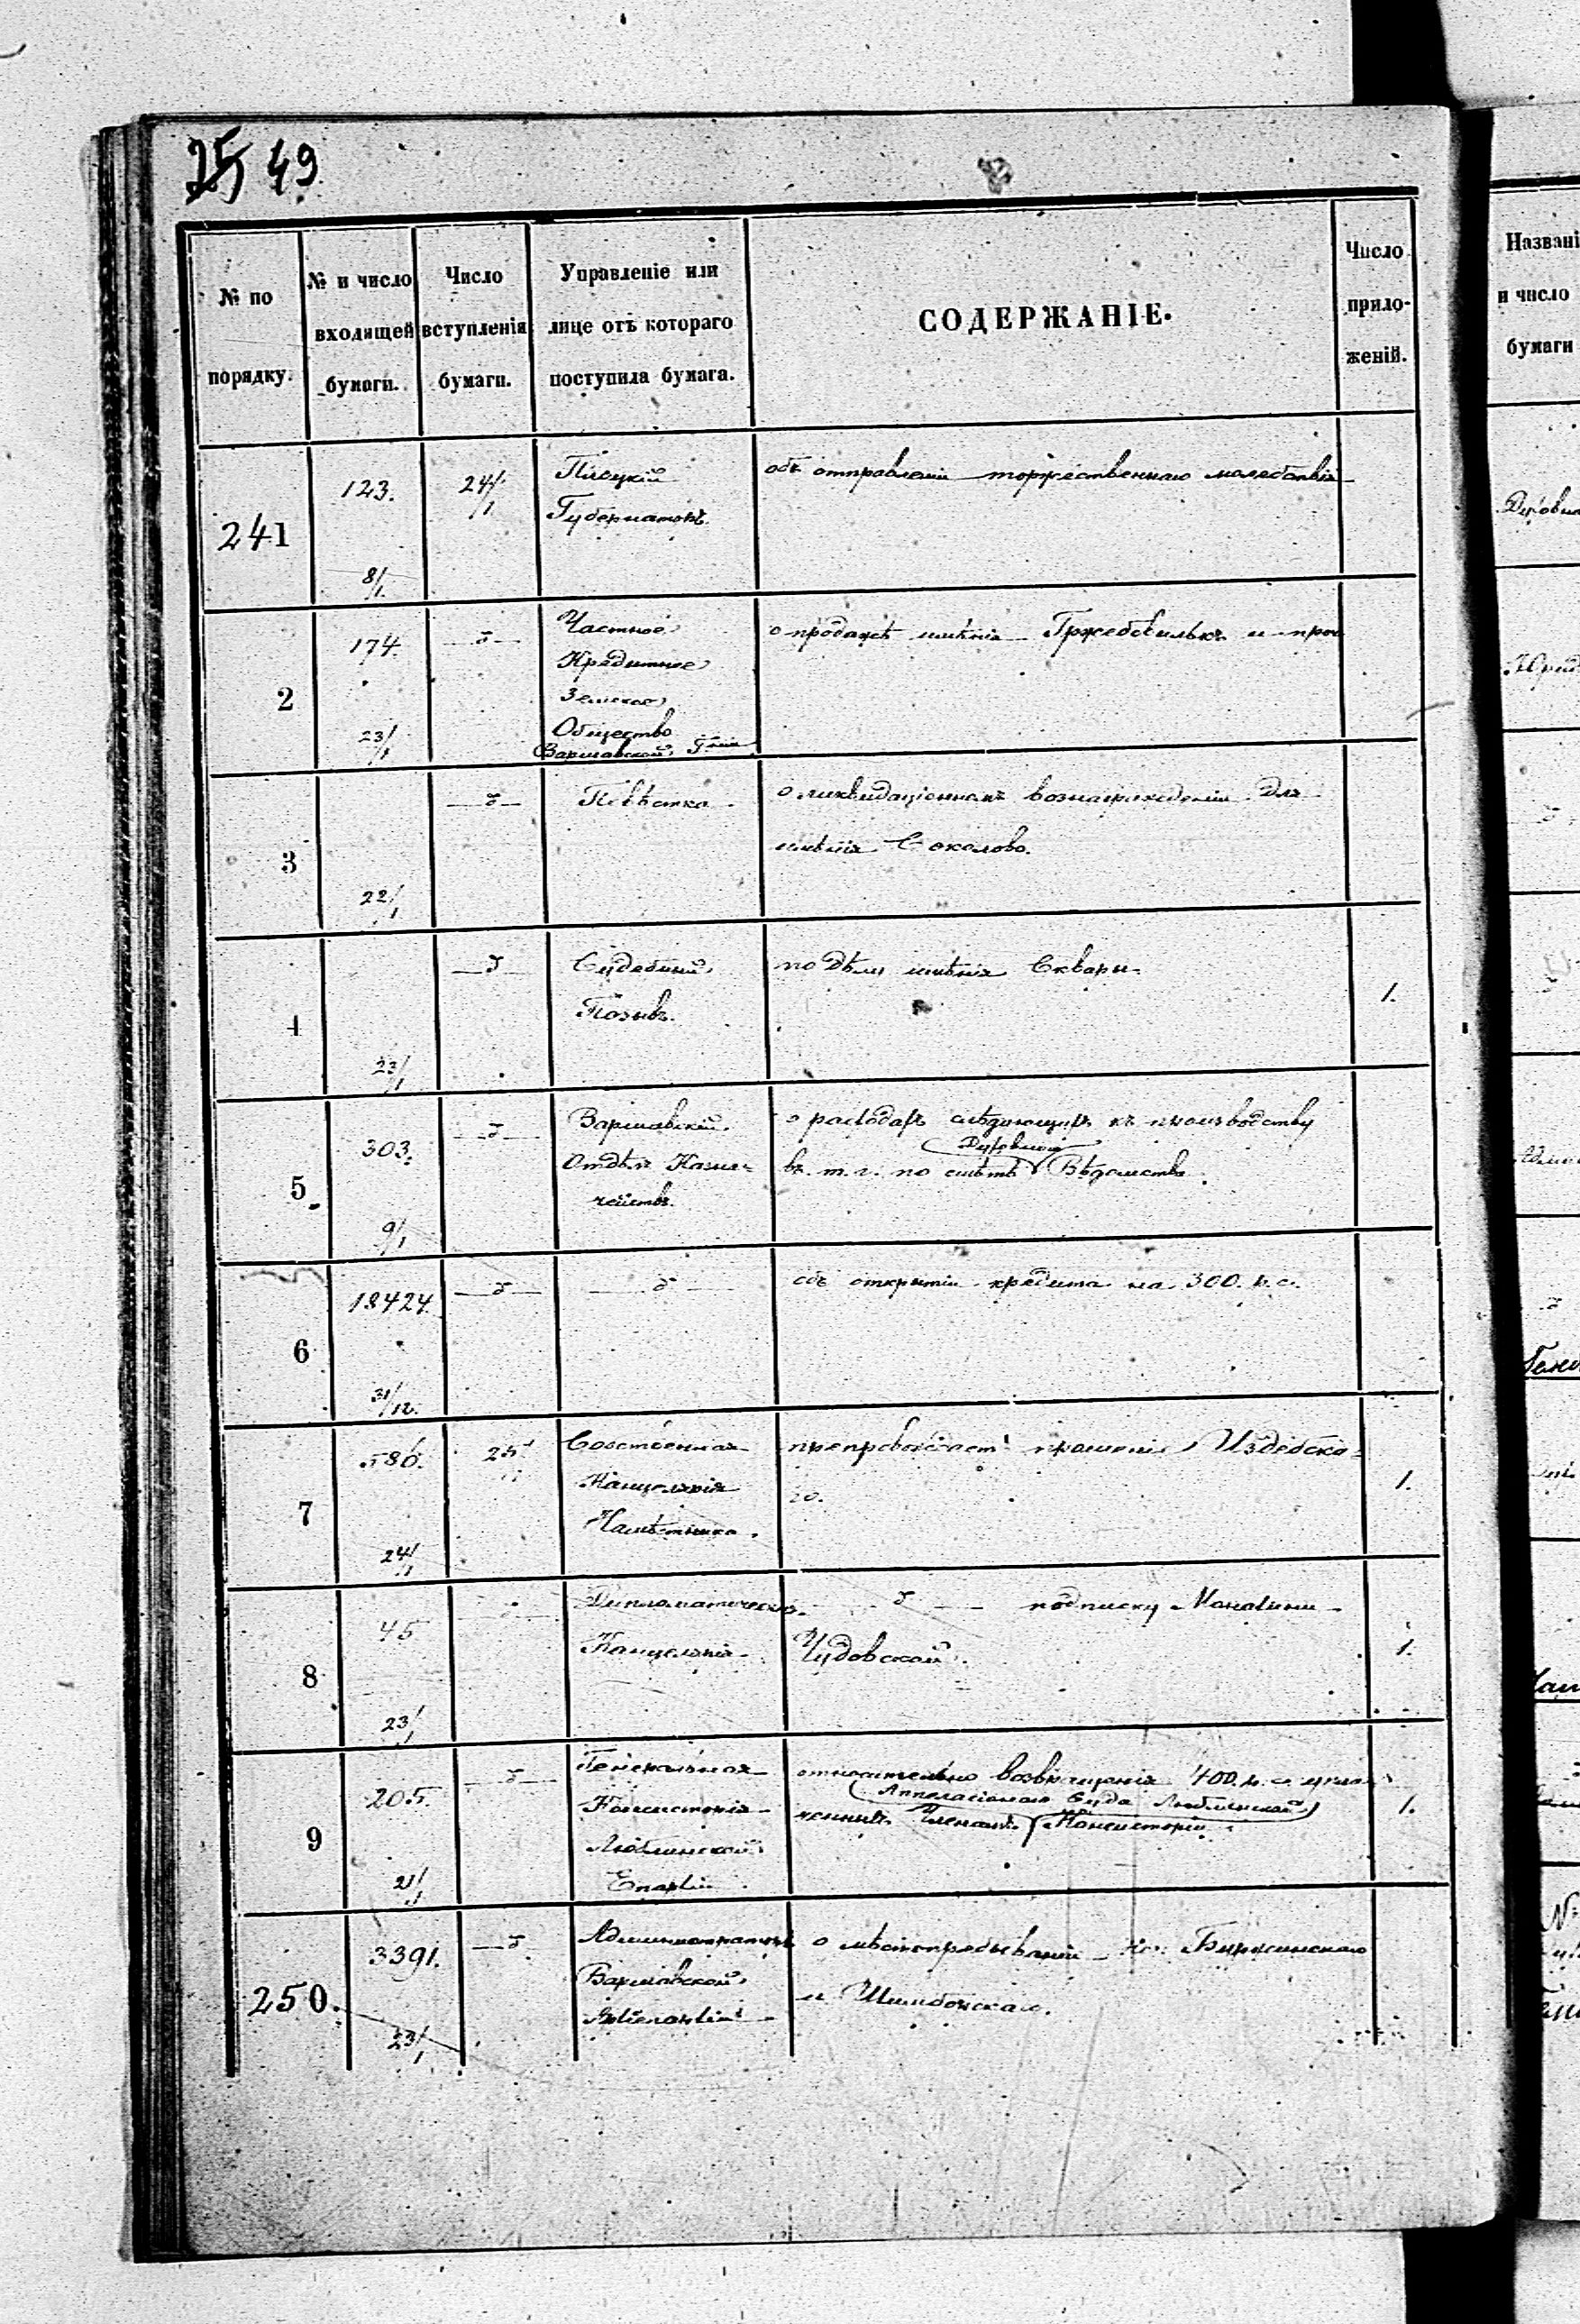 25 49
№ по порядку.
№ и число входящей бумаги.
Число вступленія бумаги.
Управленіе или лице отъ котораго поступила бумага.
СОДЕРЖАНІЕ.
Число прило-женій.
241
123.
8/1
24/1
Плоцкій
Губернаторъ
объ отправленіи торжественнаго молебствія
2
174.
23/1
Частное
Кредитное
Земское
Общество
Варшавской
о продажѣ имѣнія и проч
3
22/1
Повѣстка
о ликвидаціонномъ вознагражденіи для
имѣнія Соколово.
4
23/1
Судебный
Позывъ.
по дѣлу имѣнія Сквары
1.
5
303.
9/1
Варшавскій
Отдѣлъ Казна-
чействъ.
о расходахъ слѣдующихъ къ производству
Духовнаго
въ т. г. по смѣтѣ Вѣдомства.
6
18424.
31/12.
объ открытіи кредита на 300. р. с.
7
586.
24/1
25
Собственная
Канцелярія
Намѣстника.
препровождаетъ прошеніе Издебска-
го.
1.
8
45
23/1
Дипломатическая
Канцелярія
подписку Монахини
Чудовской.
1.
9
205.
21/1
Генеральная
Консисторія
Люблинской
Епархіи
относительно возвращенія 400. р. с.
Аппелаціоннаго Суда Люблинской
Членамъ Консисторіи.
1.
250.
3391.
23/1
Администраторъ
Варшавской
Архіепархіи
о мѣстопребываніи
и
Названі
и число
бумаги